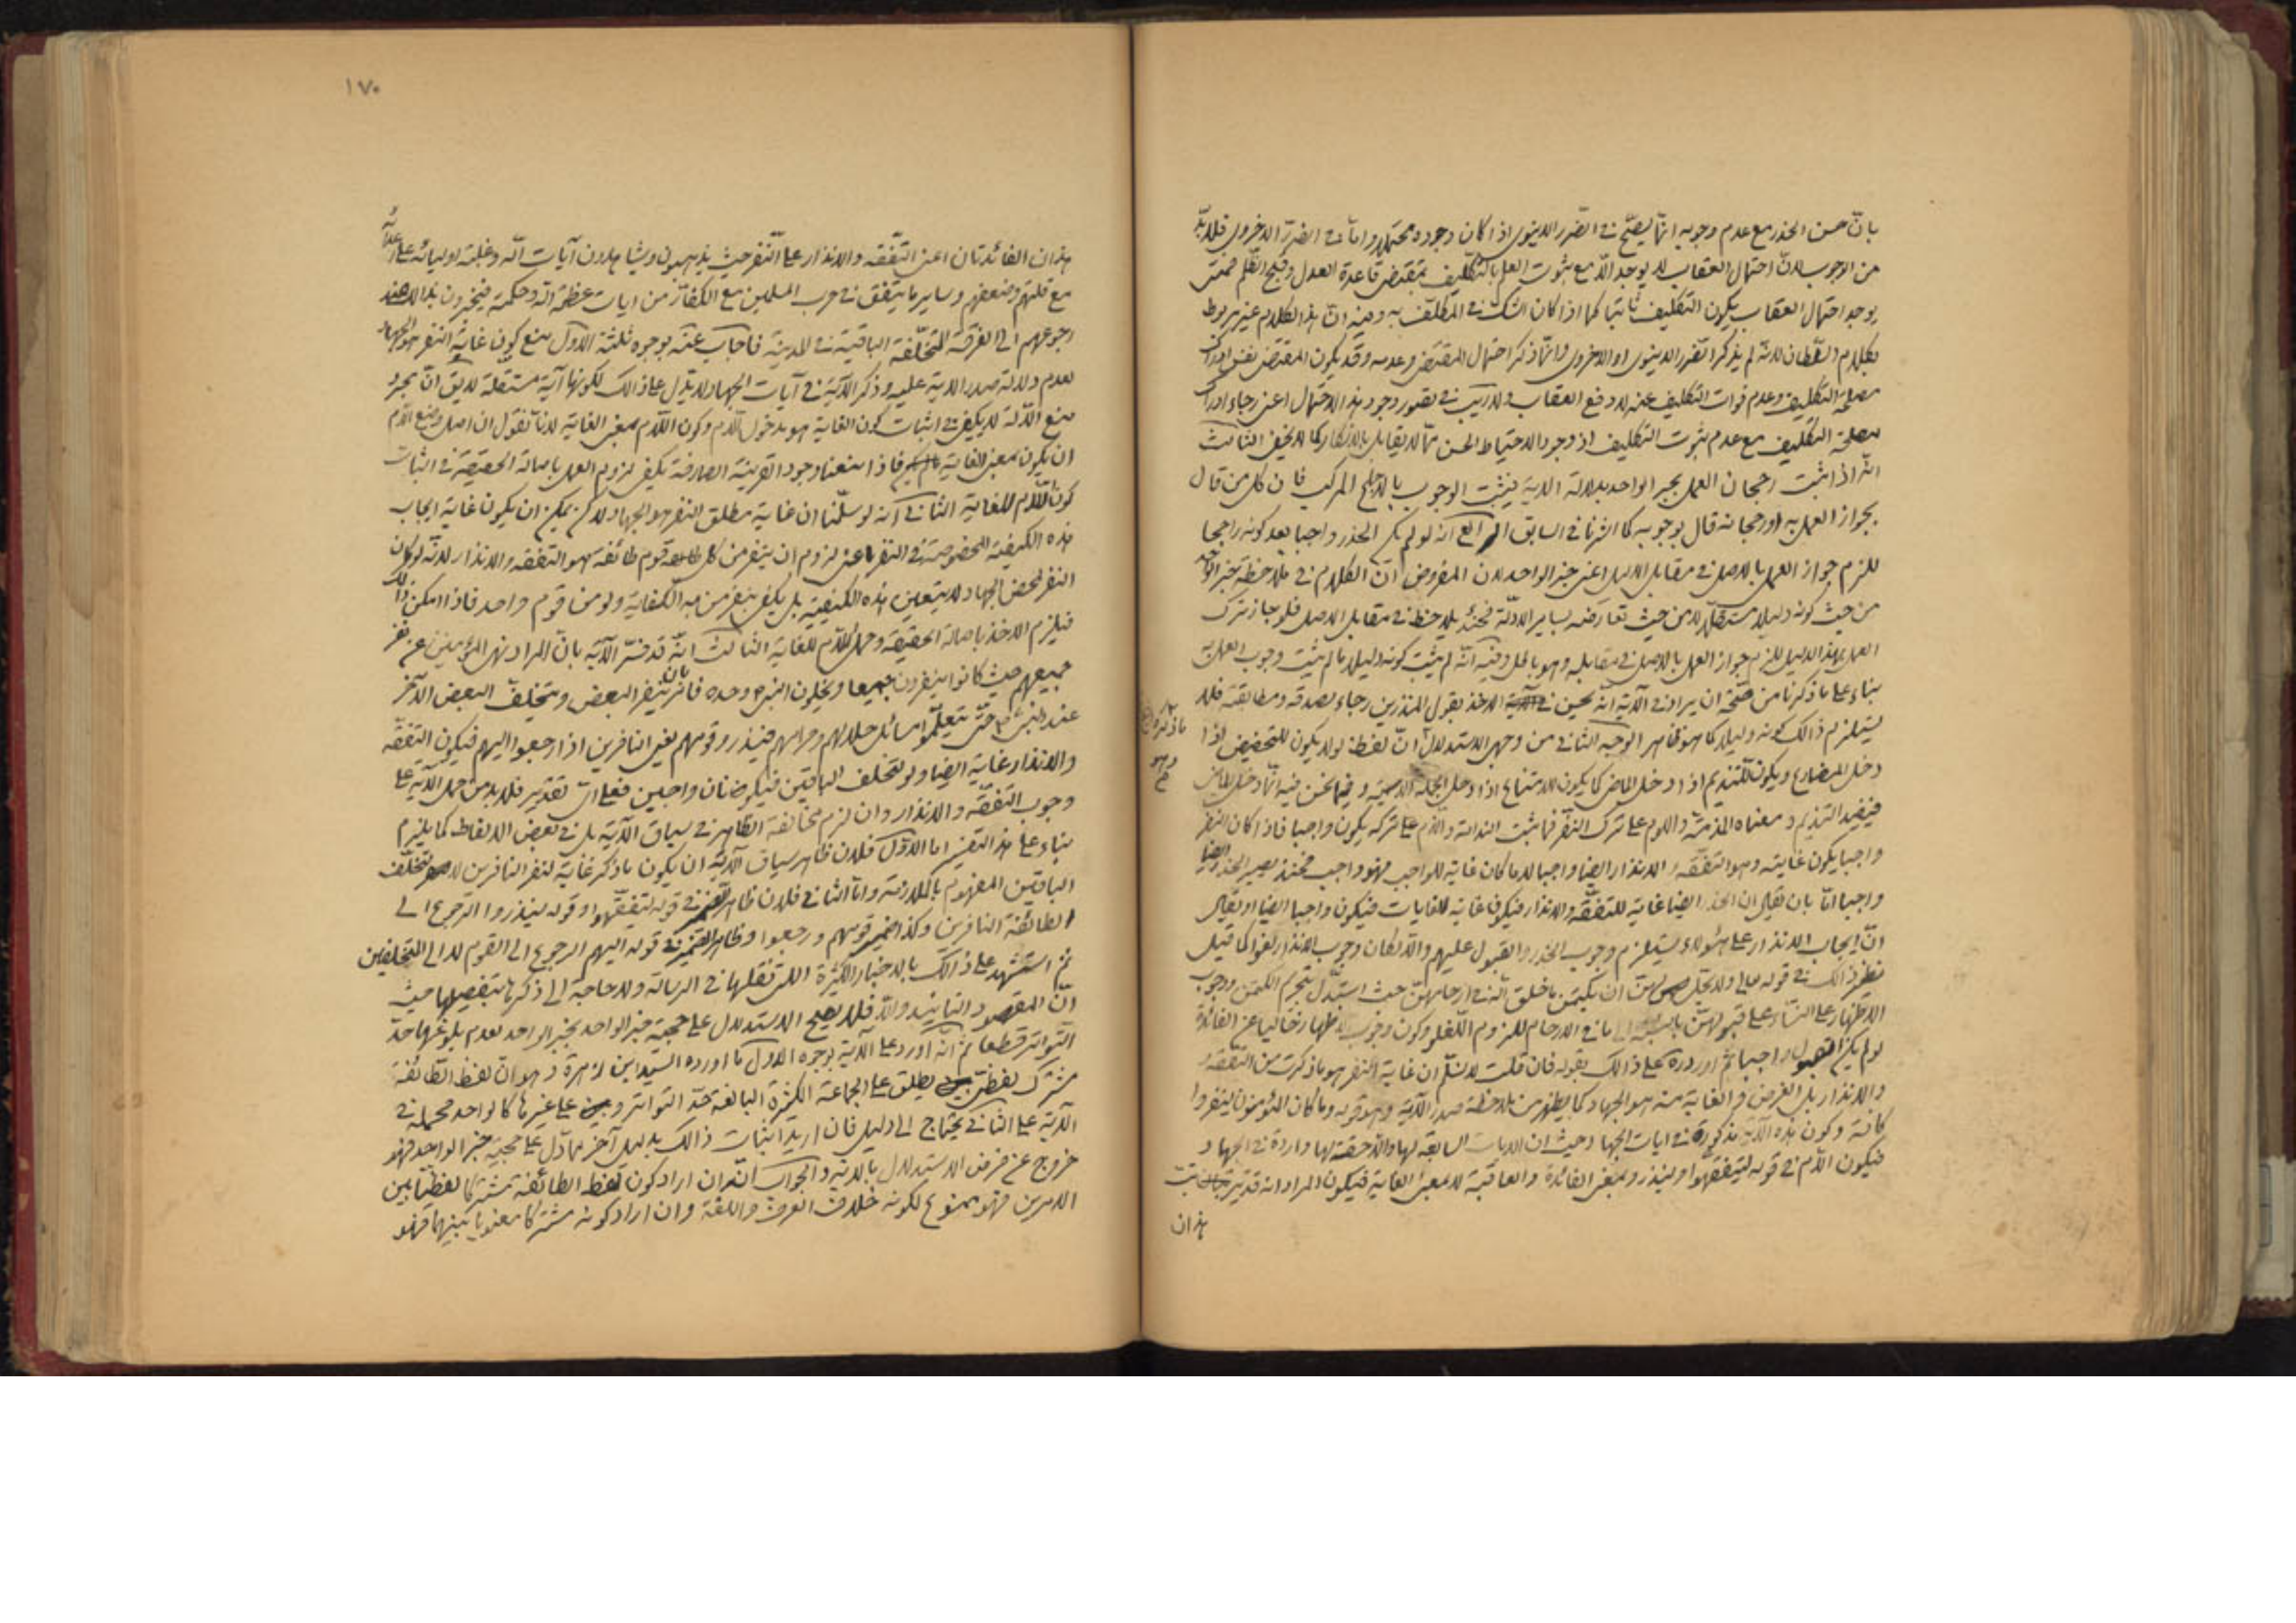 بانّ حسن الحذر مع عدم وجوبه انّما يصحّ فى الضّرر الدينوى اذا كان وجوده محتملا وامّا فى الضرر الاخروى فلابدّ
من الوجوب لانّ احتمال العقاب لا يوجد الّا مع ثبوت العلم بالتكليف بمقتضى قاعدة العدل وقبح الظّلم فمتى
يوجد احتمال العقاب يكون التكليف ثابتا كما اذا كان الشك فى المكلّف به وفيه انّ هذا الكلام غير مربوط
بكلام السّلطان لانّه لم يذكر الضّرر الدينوى او الاخروى وانّما ذكر احتمال المقتضى وعدمه وقد يكون المقتضى نفس ادراك
مصلحة التكليف وعدم فوات التكليف عنه لا دفع العقاب ولا ريب فى تصور وجود هذا الاحتمال اعنى رجاء ادراك
مصلحة التكليف مع عدم ثبوت التكليف اذ وجود الاحتياط الحسن ممّا لا يقابل بالانكار كما لا يخفى الثالث
انّه اذا ثبت رجحان العمل بخبر الواحد بدلالة الاية يثبت الوجوب بالاجماع المركب فان كل من قال
بجواز العمل به او رجحانه قال بوجوبه كما اشرنا فى السابق الرابع انّه لو لم يكن الحذر واجبا بعد كونه راجحا
للزم جواز العمل بالاصل فى مقابل الدليل اعنى خبر الواحد لان المفروض انّ الكلام فى ملاحظة خبر الواحد
من حيث كونه دليلا مستقلّا لا من حيث تعارضه بساير الادلّة فحينئذ يلاحظ فى مقابل الاصل فلو جاز ترك
العمل بهذا الدليل للزم جواز العمل بالاصل فى مقابله وهو باطل وفيه انّه لم يثبت كونه دليلا ما لم يثبت وجوب العمل به
بناء على ما ذكرنا من صحّة ان يراد فى الاية انّه يحسن الاخذ بقول المنذرين رجاء بصدقه ومطابقته فلا
يستلزم ذالك كونه دليلا كما هو ظاهر الوجه الثانى من وجهى الاستدلال انّ لفظة لولا يكون للتحضيض اذا
دخل المضارع ويكون للتنديم اذا دخل الماضى كما يكون للامتناع اذا دخل الجملة الاسمية وفيما نحن فيه انّما دخل الماضى
فيفيد التنديم ومعناه المذمّة واللوم على ترك النفر فما يثبت الندامة والذم على تركه يكون واجبا فاذا كان النفر
واجبا يكون غايته وهو التفقّه والانذار ايضا واجبا لان ما كان غاية للواجب فهو واجب فحينئذ يصير الحذر ايضا
واجبا امّا بان نقول ان الحذر ايضا غاية للتفقّه والانذار فيكون غاية للغايات فيكون واجبا ايضا او نقول
انّ ايجاب الانذار على هؤلاء يستلزم وجوب الحذر والقبول عليهم والّا لكان وجوب الانذار لغوا كما قيل
نظير ذالك فى قوله تعالى ولا يحل لهنّ ان يكتمن ما خلق الله فى ارحامهنّ حيث استدلّ بتحريم الكتمان ووجوب
الاظهار على النساء على قبولهنّ ما فى الارحام للزوم اللّغو وكون وجوب الاظهار خاليا عن الفائدة
لو لم يكن القبول واجبا ثمّ اورد على ذالك بقوله فان قلت لا نسلّم ان غاية النفر هو ما ذكرت من التفقه
والانذار بل الغرض والغاية منه هو الجهاد كما يظهر من ملاحظة صدر الاية وهو قوله وما كان المؤمنون لينفروا
كافة وكون هذه الاية مذكورة فى ايات الجهاد وحيث ان الايات السابقة لها واللاحقة لها واردة فى الجهاد
فيكون اللّام فى قوله ليتفقهوا ولينذروا بمعنى الفائدة والعاقبة لا بمعنى الغاية فيكون المراد انه قد يترتب
هذان
١٧٠
هذان الفائدتان اعنى التفقّه والانذار على النّفر حيث يذهبون ويشاهدون آيات اللّه وغلبة اوليائه على اعدائه
مع قلّتهم وضعفهم وساير ما يتفق فى حرب المسلمين مع الكفّار من ايات عظمة اللّه وحكمته فيخبرون بذالك عند
رجوعهم الى الفرقة المتخلّفة الباقية فى المدينة فاجاب عنه بوجوه ثلثة الاول منع كون غاية النفر هو الجهاد
لعدم دلالة صدر الاية عليه وذكر الآية فى آيات الجهاد لا يدلّ على ذالك لكونها آية مستقلة لا يق انّ مجرد
منع الدّلالة لا يكفى فى اثبات كون الغاية هو مدخول اللّام وكون اللّام بمعنى الغاية لانّا نقول ان اصل وضع اللّام
ان يكون بمعنى الغاية فاذا منعنا وجود القرينة الصارفة يكفى لزوم العمل باصالة الحقيقة فى اثبات
كون اللّام للغاية الثانى انّه لو سلّمنا ان غاية مطلق النفر هو الجهاد ولكن يمكن ان يكون غاية ايجاب
هذه الكيفية المخصوصة فى النفر اعنى لزوم ان ينفر من كل قوم طائفة هو التفقه والانذار لانّه لو كان
النفر لمحض الجهاد لا يتعين هذه الكيفية بل يكفى نفر من به الكفاية ولو من قوم واحد فاذا امكن ذالك
فيلزم الاخذ باصالة الحقيقة وحمل اللّام للغاية الثالث انّه قد فسّر الآية بانّ المراد نهى المؤمنين عن نفر
جميعهم حيث كانوا ينفرون جميعا ويخلّون النبى وحده فامر بان ينفر البعض ويتخلّف البعض الآخر
عند النبى حتّى يتعلّموا مسائل حلالهم وحرامهم فينذروا قومهم يعنى النافرين اذا رجعوا اليهم فيكون التفقّه
والانذار غاية ايضا ولو لتخلف الباقين فيكونان واجبين فعلى اىّ تقدير فلابد من حمل الآية على
وجوب التفقّه والانذار وان لزم مخالفة الظاهر فى سياق الآية بل فى بعض الالفاظ كما يلزم
بناء على هذا التفسير اما الاوّل فلان ظاهر سياق الآية ان يكون ما ذكر غاية لنفر النافرين لا لتخلّف
الباقين المفهوم بالملازمة وامّا الثانى فلان ظاهر الضمير فى قوله ليتفقّهوا وقوله لينذروا الرجوع الى
الطائفة النافرين وكذا ضمير قومهم ورجعوا وظاهر الضمير فى قوله اليهم الرجوع الى القوم لا الى المتخلفين
ثم استشهد على ذالك بالاخبار الكثيرة اللتى نقلها فى الرسالة ولا حاجة الى ذكرها بتفصيلها حيث
انّ المقصود التائيد والّا فلا يصحّ الاستدلال على حجية خبر الواحد بخبر الواحد لعدم بلوغها حدّ
التواتر قطعا ثمّ انّه اورد على الآية بوجوه الاول ما اورده السّيد ابن زهرة وهو انّ لفظ الطّائفة
مشترك لفظىّ يطلق على الجماعة الكثيرة البالغة حدّ التواتر وعلى غيرها كالواحد فحمله فى
الآية على الثانى يحتاج الى دليل فان اريد اثبات ذالك بدليل آخر ممّا دلّ على حجية خبر الواحد فهو
خروج عن فرض الاستدلال بالاية والجواب انّه ان اراد كون لفظ الطائفة مشتركا لفظيّا بين
الامرين فهو ممنوع لكونه خلاف العرف واللغة وان اراد كونه مشتركا معنويا بينهما فهو